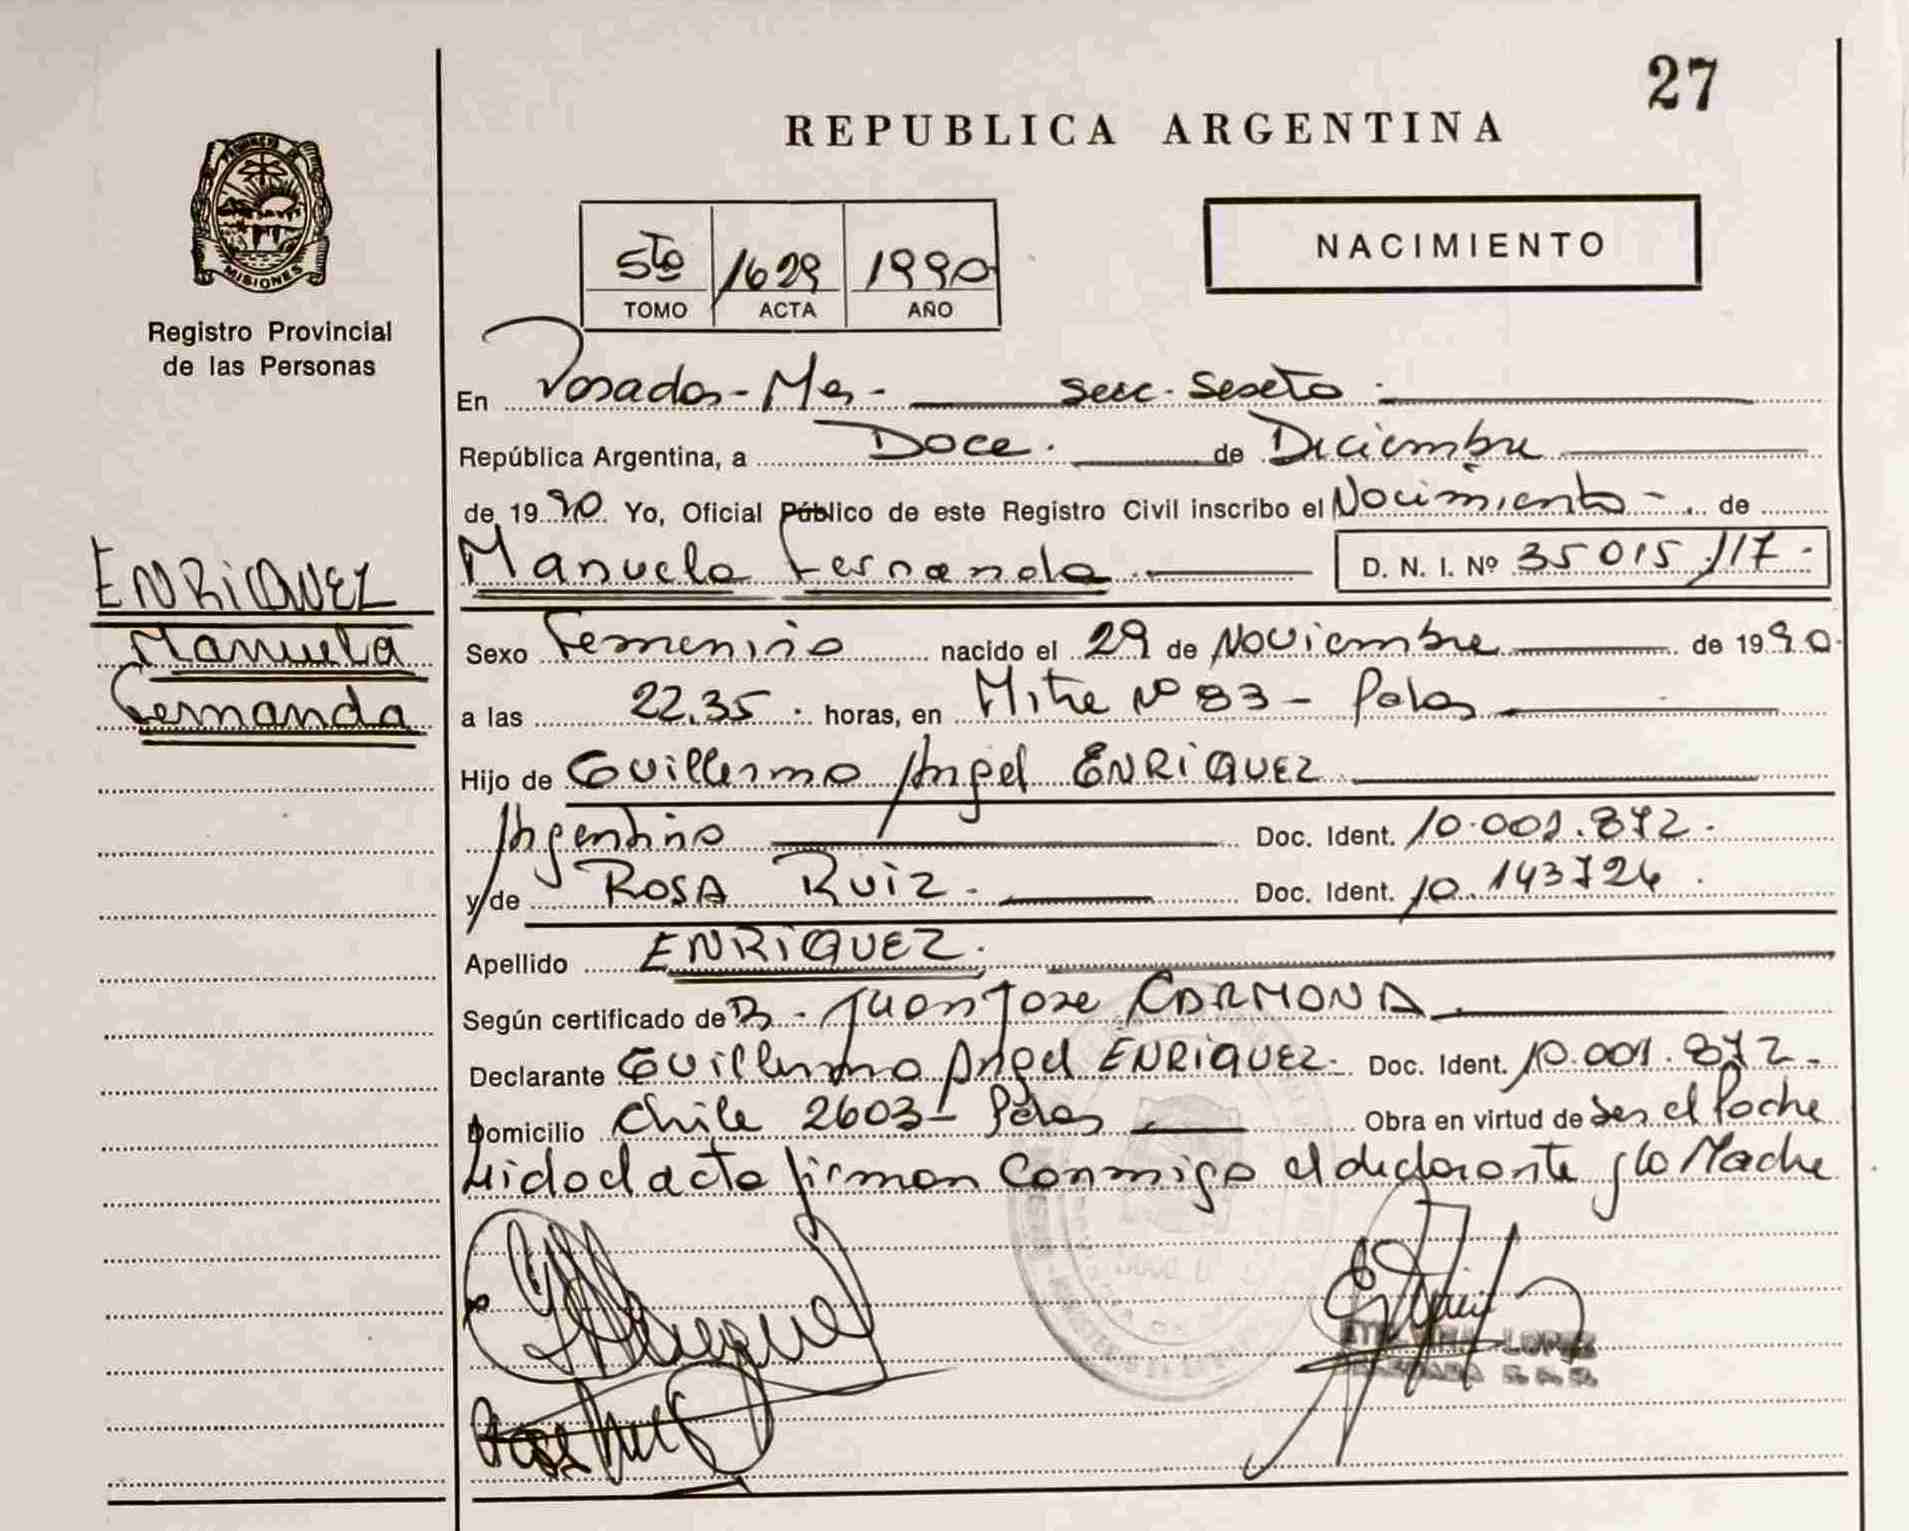 27
REPUBLICA ARGENTINA
PROVINCIA DE
MISIONES
Registro Provincial
de las Personas
5to 1629 1990
TOMO ACTA AÑO
NACIMIENTO
En Posadas - Mnes - secc. sexta
República Argentina, a Doce. de Diciembre
de 1990 Yo, Oficial Público de este Registro Civil inscribo el Nacimiento - de
Manuela Fernanda D. N. I. Nº 35 015 117 -
ENRIQUEZ
Manuela
Fernanda
Sexo Femenino nacido el 29 de Noviembre de 1990
a las 22.35 . horas, en Mitre Nº 83 - Pdas
Hijo de Guillermo Angel ENRIQUEZ
Argentino Doc. Ident. 10.001.872.
y de ROSA RUIZ. Doc. Ident. 10.143724.
Apellido ENRIQUEZ.
Según certificado de Dr. Juan Jose CARMONA
Declarante Guillermo Angel ENRIQUEZ. Doc. Ident. 10.001.872.
Domicilio Chile 2603 - Pdas Obra en virtud de ser el Padre
Leido el acta firman conmigo el declarante y la Madre
LOPEZ